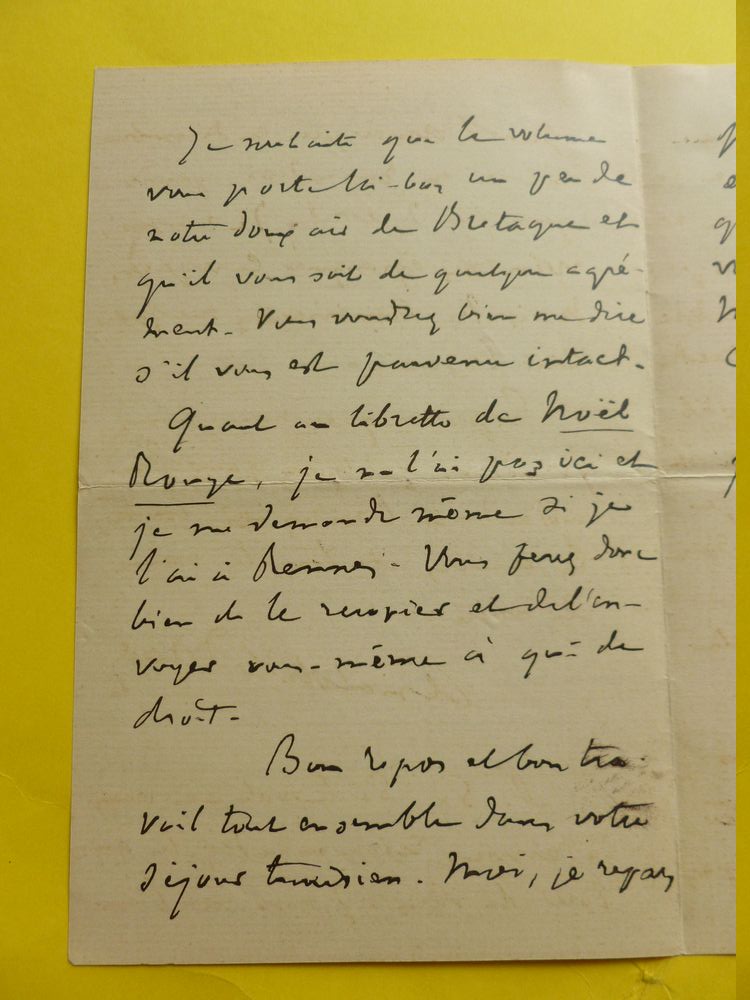 Je souhaite que le volume
vous porte là-bas un peu de
notre doux air de Bretagne et
qu'il vous soit de quelque agré-
ment. Vous voudrez bien me dire
s'il vous est parvenu intact.
Quant au libretto de Noël
Rouge, je ne l'ai pas ici et
je me demande même si je
l'ai à Rennes. Vous ferez donc
bien de le recopier et de l'en-
voyer vous-même à qui de
droit.
Bon repos et bon tra-
vail tout ensemble dans votre
séjour tunisien. Moi, je repars